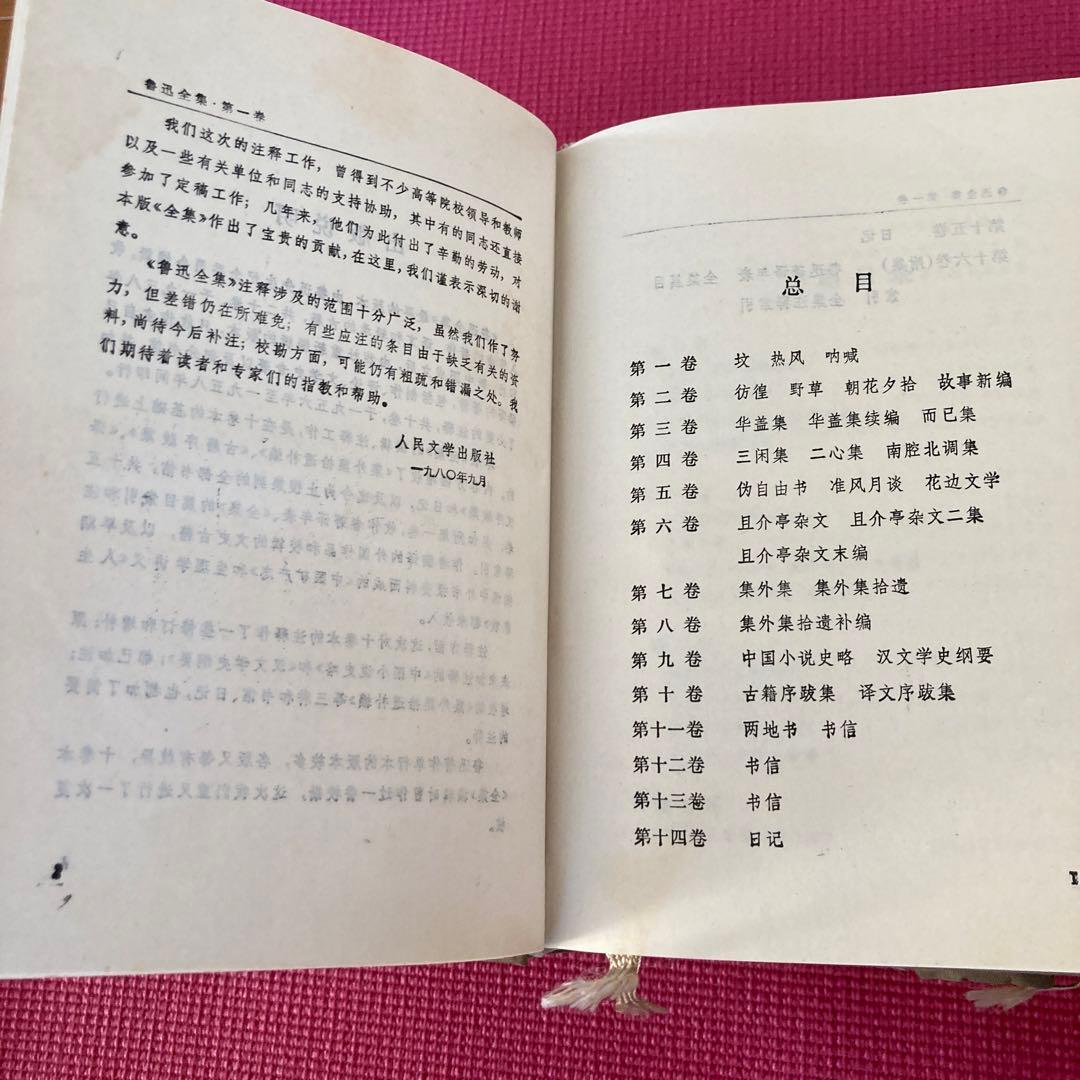 鲁迅全集·第一卷
我们这次的注释工作，曾得到不少高等院校领导和教师
以及一些有关单位和同志的支持协助，其中有的同志还直接
参加了定稿工作；几年来，他们为此付出了辛勤的劳动，对
本版《全集》作出了宝贵的贡献，在这里，我们谨表示深切的谢
意。
《鲁迅全集》注释涉及的范围十分广泛，虽然我们作了努
力，但差错仍在所难免；有些应注的条目由于缺乏有关的资
料，尚待今后补注；校勘方面，可能仍有粗疏和错漏之处。我
们期待着读者和专家们的指教和帮助。
人民文学出版社
一九八〇年九月
2
总目
第一卷 坟 热风 呐喊
第二卷 彷徨 野草 朝花夕拾 故事新编
第三卷 华盖集 华盖集续编 而已集
第四卷 三闲集 二心集 南腔北调集
第五卷 伪自由书 准风月谈 花边文学
第六卷 且介亭杂文 且介亭杂文二集
且介亭杂文末编
第七卷 集外集 集外集拾遗
第八卷 集外集拾遗补编
第九卷 中国小说史略 汉文学史纲要
第十卷 古籍序跋集 译文序跋集
第十一卷 两地书 书信
第十二卷 书信
第十三卷 书信
第十四卷 日记
1